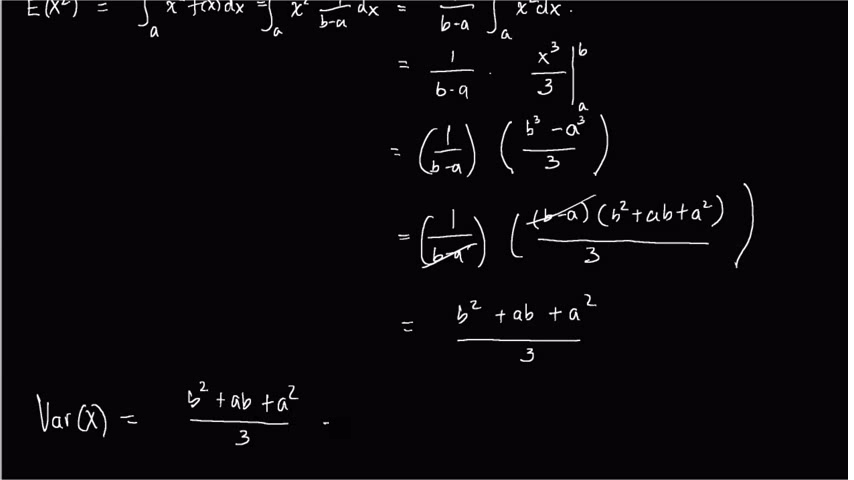 E(X²) = ∫ₐ x² f(x)dx = ∫ₐ x² 1/(b-a) dx = 1/(b-a) ∫ₐ x² dx.
= 1/(b-a) · x³/3 |ₐᵇ
= (1/(b-a)) ((b³-a³)/3)
= (1/(b-a)) ((b-a)(b²+ab+a²)/3)
= (b²+ab+a²)/3
Var(X) = (b²+ab+a²)/3 -